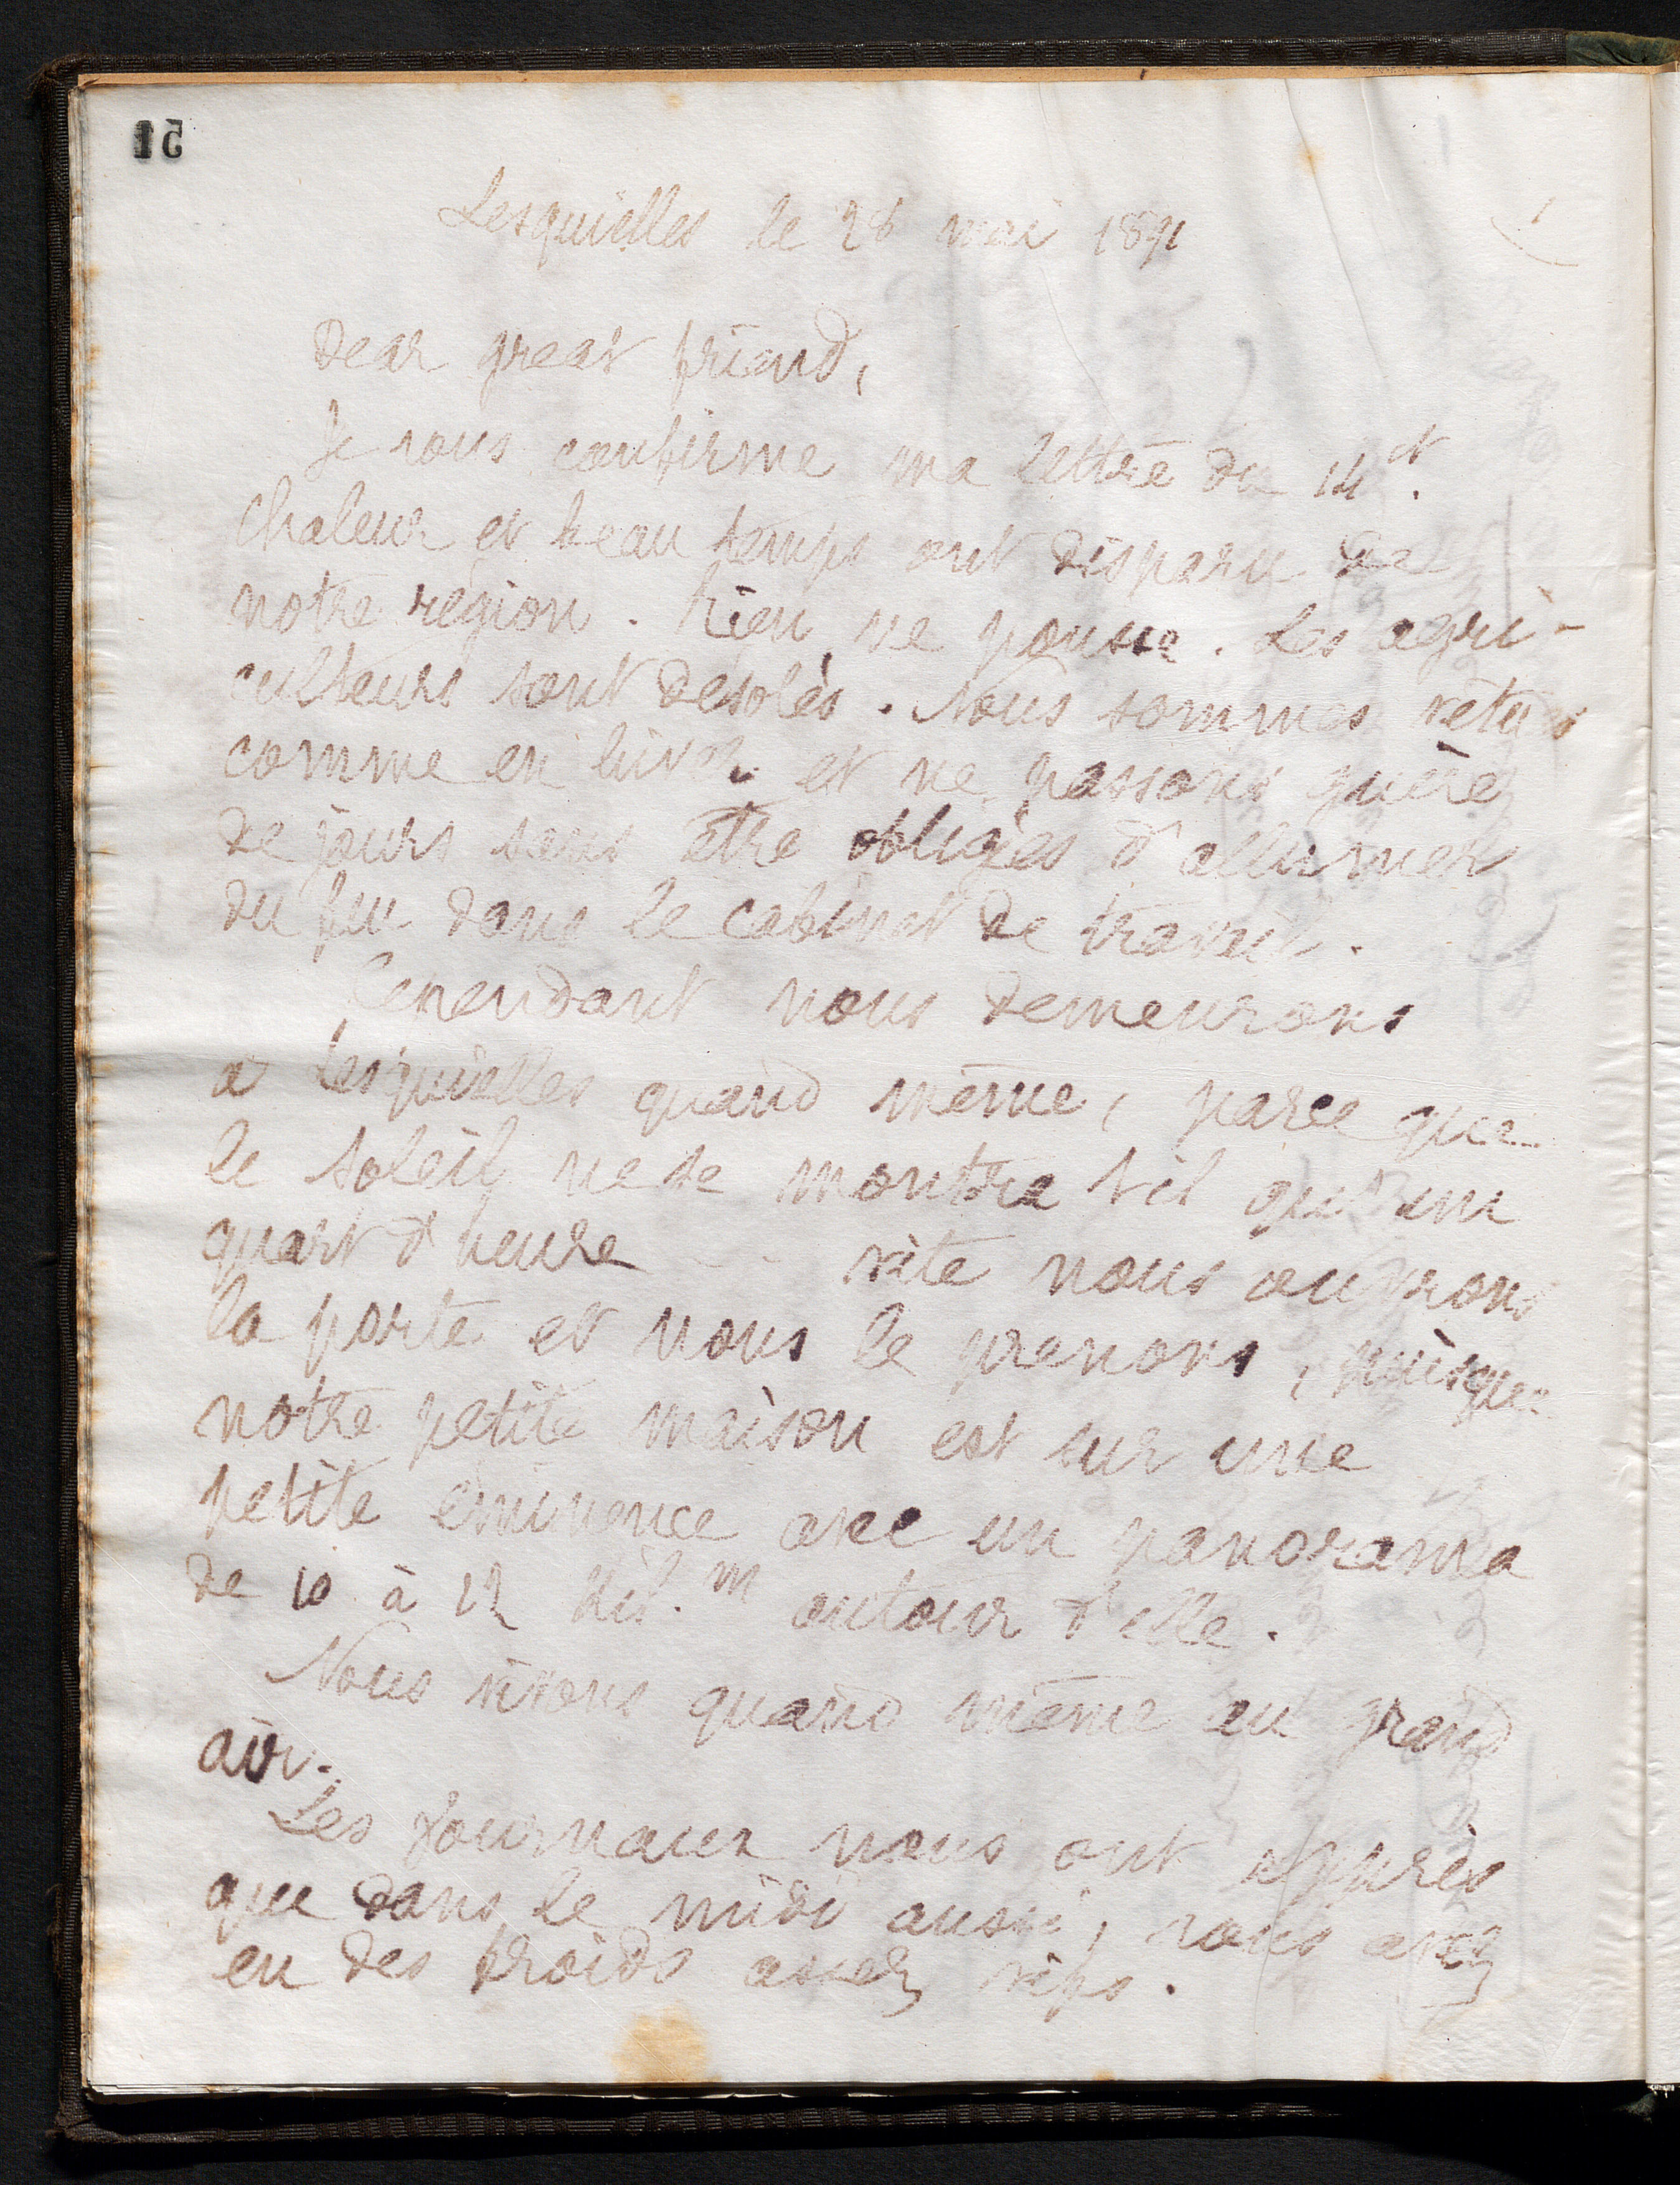 51
Lesquielles le 28 mai 1891
Dear great friend,
Je vous confirme ma lettre du 14 ct.
Chaleur et beau temps ont disparu de
notre région. Rien ne pousse. Les agri-
culteurs sont désolés. Nous sommes vêtus
comme en hiver et ne passons guère
de jours sans être obligés d'allumer
du feu dans le cabinet de travail.
Cependant nous demeurons
à Lesquielles quand même, parce que
le soleil ne se montre t'il qu'un
quart d'heure -- vite nous ouvrons
la porte et nous le prenons, puisque
notre petite maison est sur une
petite éminence avec un panorama
de 10 à 12 kil.m autour d'elle.
Nous vivons quand même au grand
air.
Les journaux nous ont appris
que dans le midi aussi, vous avez
eu des froids assez vifs.